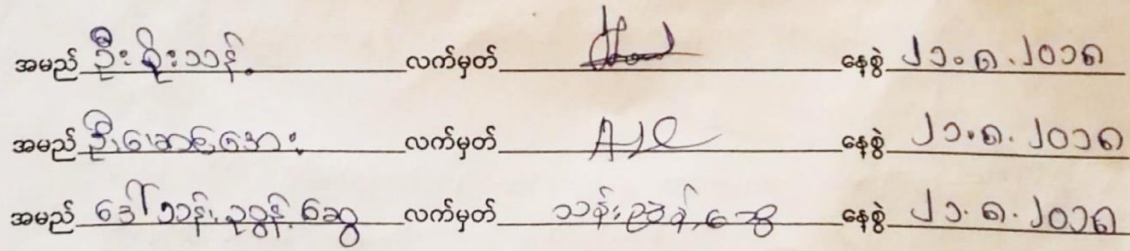 အမည် ဦးစိုးသန့် လက်မှတ် နေ့စွဲ ၂၁.၈.၂၀၁၈
အမည် ဦးမောင်အေး လက်မှတ် နေ့စွဲ ၂၁.၈.၂၀၁၈
အမည် ဒေါ်သန်းညွန့်ဆွေ လက်မှတ် သန်းညွန့်ဆွေ နေ့စွဲ ၂၁.၈.၂၀၁၈